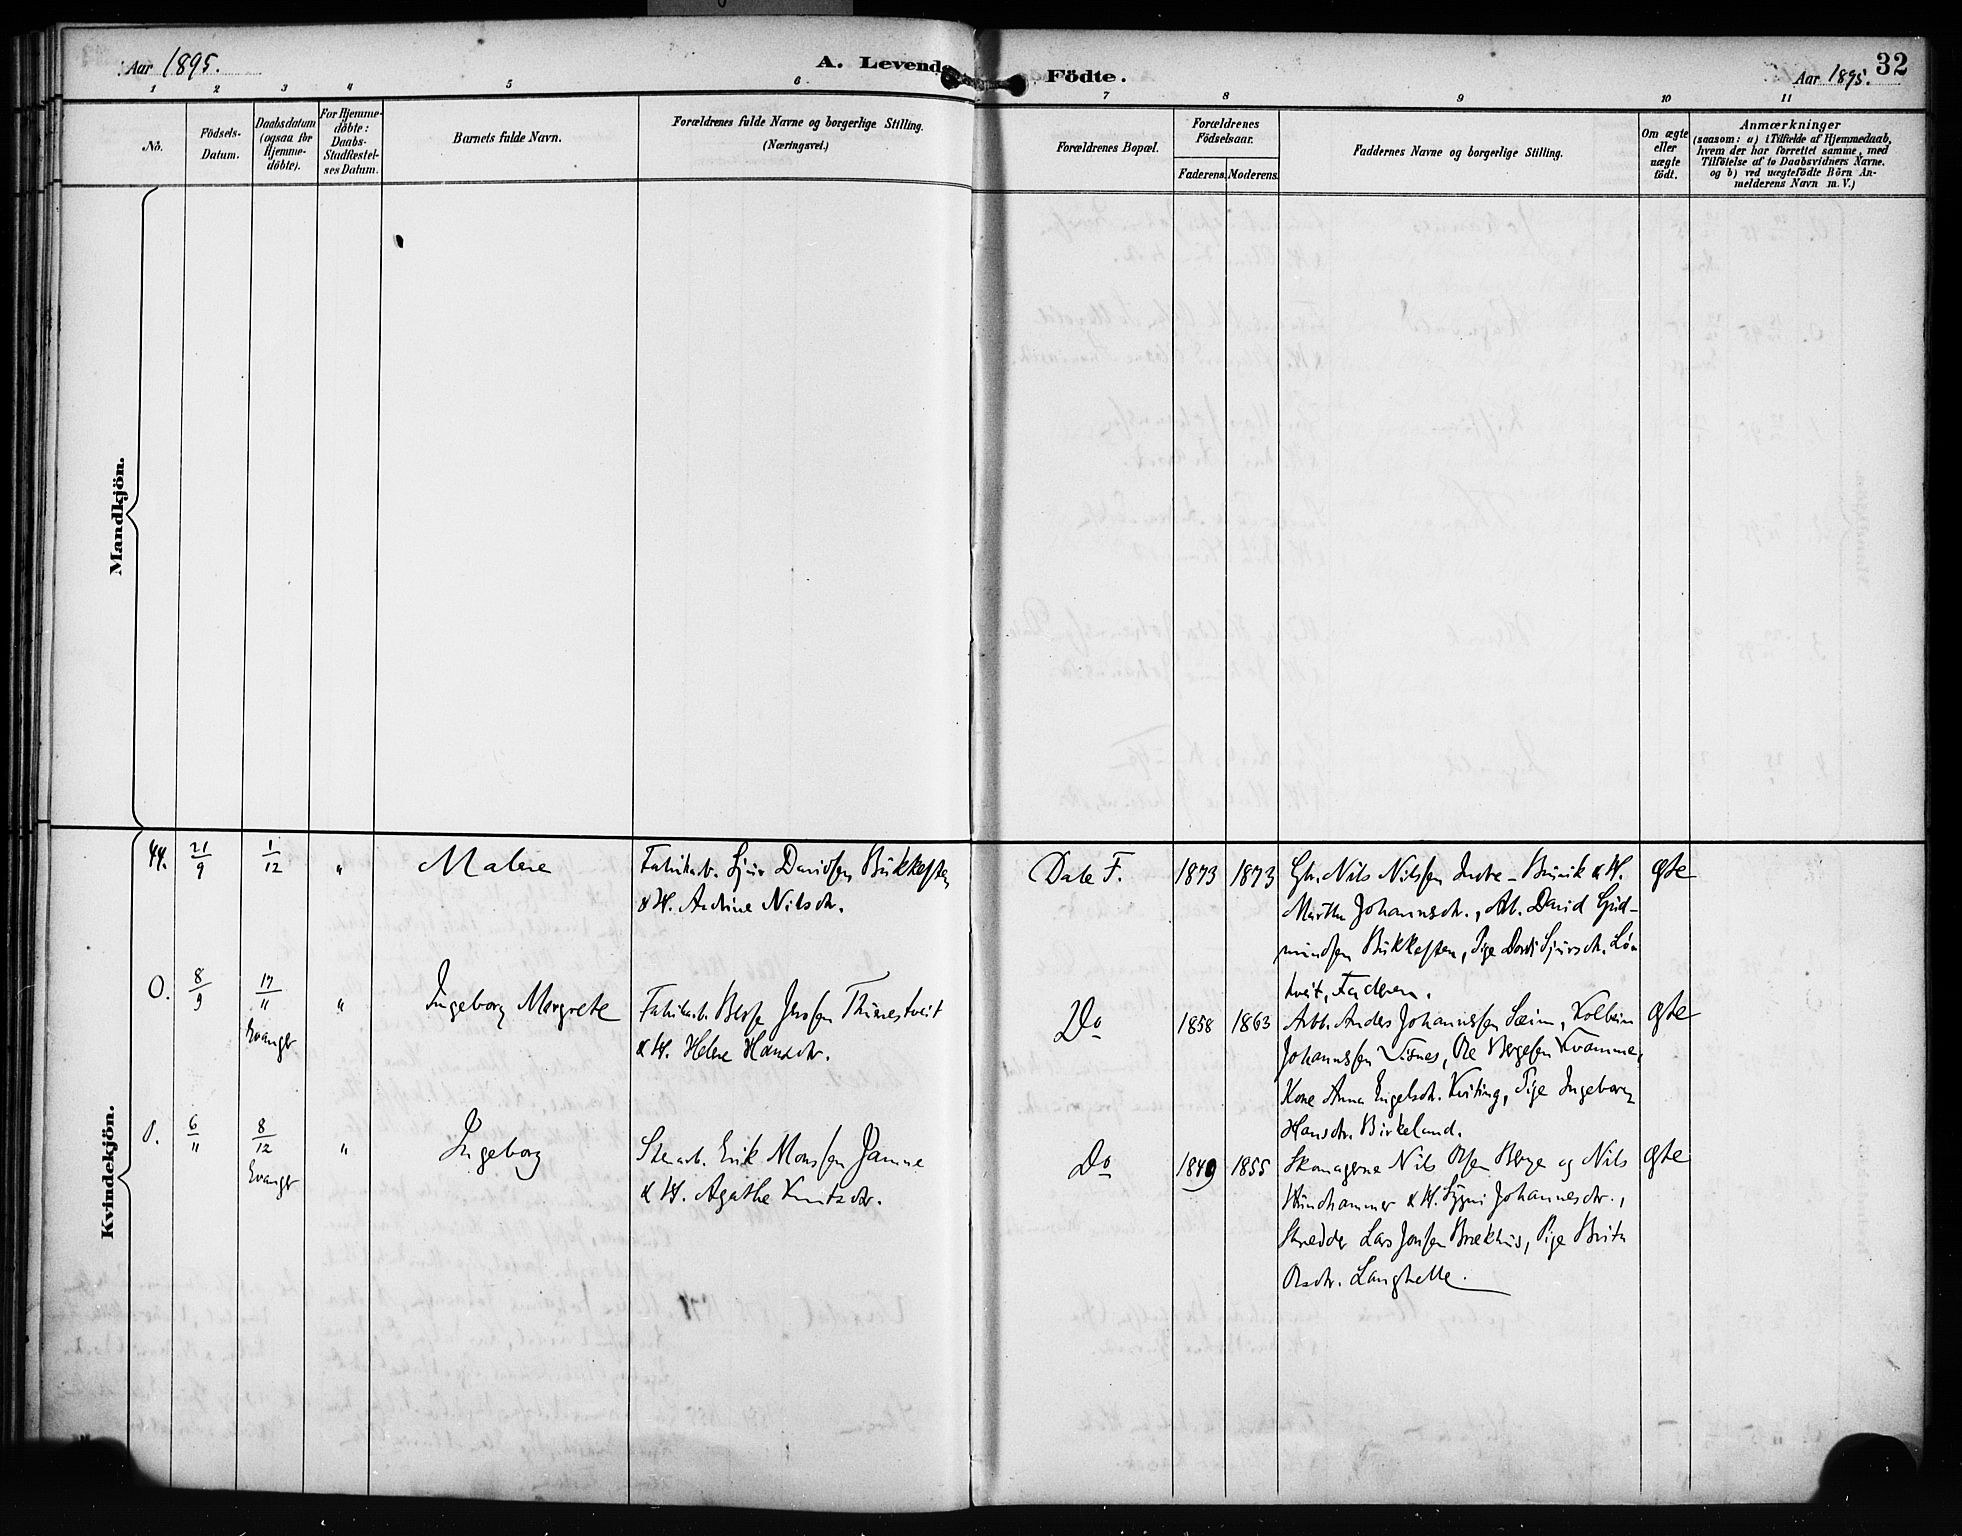 Aar 1895.
A. Levende Födte.
Aar 1895.
32
1 2 3 4 5 6 7 8 9 10 11
No.
Födsels-
Datum.
Daabsdatum
(ogsaa for
Hjemme-
döbte).
For Hjemme-
döbte:
Daabs-
Stadfæstel-
ses Datum.
Barnets fulde Navn.
Forældrenes fulde Navne og borgerlige Stilling.
(Næringsvei.)
Forældrenes Bopæl.
Forældrenes
Födselsaar.
Faderens.
Moderens.
Faddernes Navne og borgerlige Stilling.
Om ægte
eller
uægte
födt.
Anmærkninger
(saasom: a) i Tilfælde af Hjemmedaab,
hvem der har forrettet samme, med
Tilföielse af to Daabsvidners Navne.
og b) ved uægtefödte Börn An-
melderens Navn m. V.)
Mandkjön.
Kvindekjön.
44.
21/9
1/12
"
Malene
Fabrikarb. Sjur Davidsen Bukkesten
& H. Andrine Nilsdtr.
Dale F.
1873
1873
Gbr. Nils Nilsen Indre-Bruvik & H.
Martha Johannsdtr., Arb. David Gud-
mundsen Bukkesten, Pige Dordi Sjursdtr. Løn
tveit, Faderen.
ægte
O.
8/9
17/11
Evanger
"
Ingeborg Margrete
Fabrikarb. Berge Jensen Thunestveit
& H. Helene Hansdtr.
Do
1858
1863
Arb. Anders Johannessen Seim, Kolbein
Johannessen Visnes, Ole Bergesen Kvamme,
Kone Anna Engelsdtr. Kviting, Pige Ingeborg
Hansdtr. Birkeland.
ægte
O.
6/11
8/12
Evanger
"
Ingeborg
Stenarb. Erik Monsen Janne
& H. Agathe Knutsdtr.
Do
1849
1855
Skomagerne Nils Olsen Berge og Nils
Hundhammer & H. Sygni Johannesdtr.,
Skredder Lars Jonsen Brækhus, Pige Brita
Olsdtr. Langhelle.
ægte